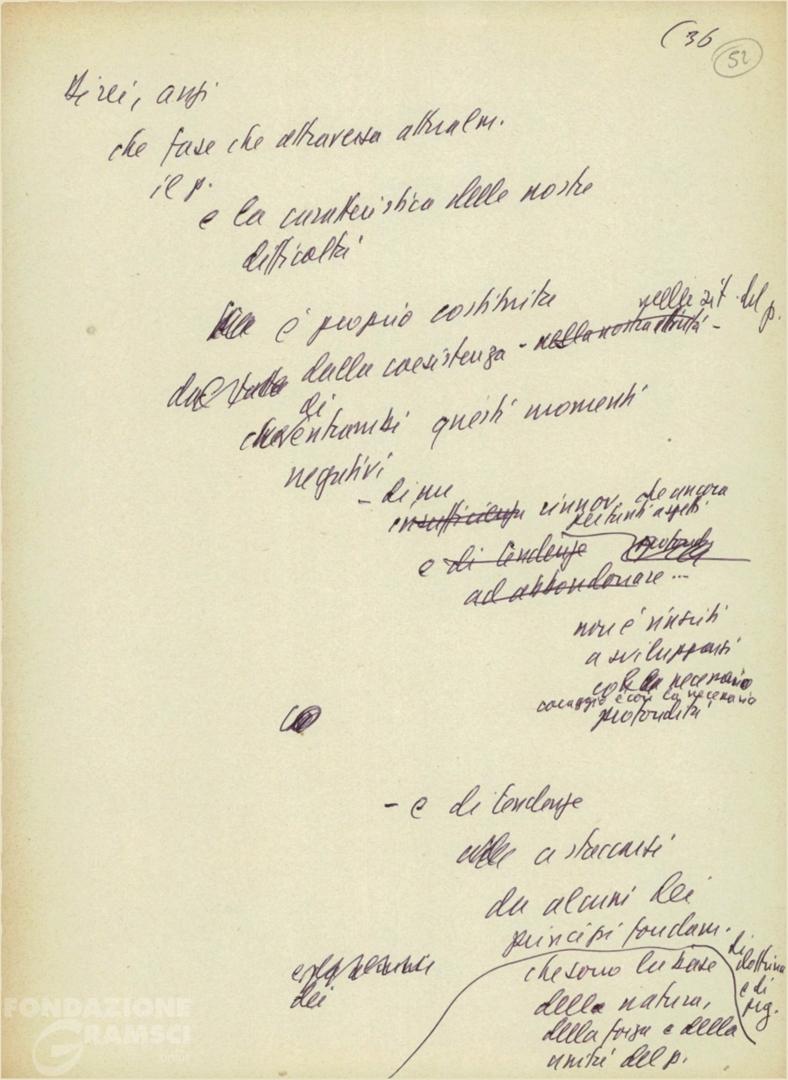 (36
52
Direi, anzi
che fase che attraversa attualm.
il p.
e la caratteristica delle nostre
difficoltà
è proprio costituita
nelle sit. del p.
dallo stato dalla coesistenza - nella nostra attività -
di
entrambi questi momenti
negativi
- di un
insufficienza rinnov. che ancora
per tanti aspetti
e di tendenze profondo
ad abbandonare ...
non è riuscito
a svilupparsi
col necessario
coraggio e con la necessaria
profondità
- e di tendenze
a staccarsi
da alcuni dei
principi fondam.
di dottrina
e di
org.
che sono la base
dei
della natura,
della forza e della
unità del p.
FONDAZIONE
GRAMSCI